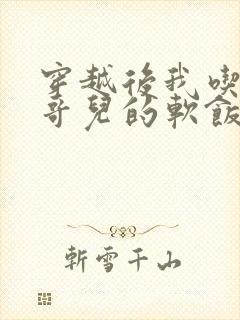 穿越後我喫
哥兒的軟飯
斬雪千山